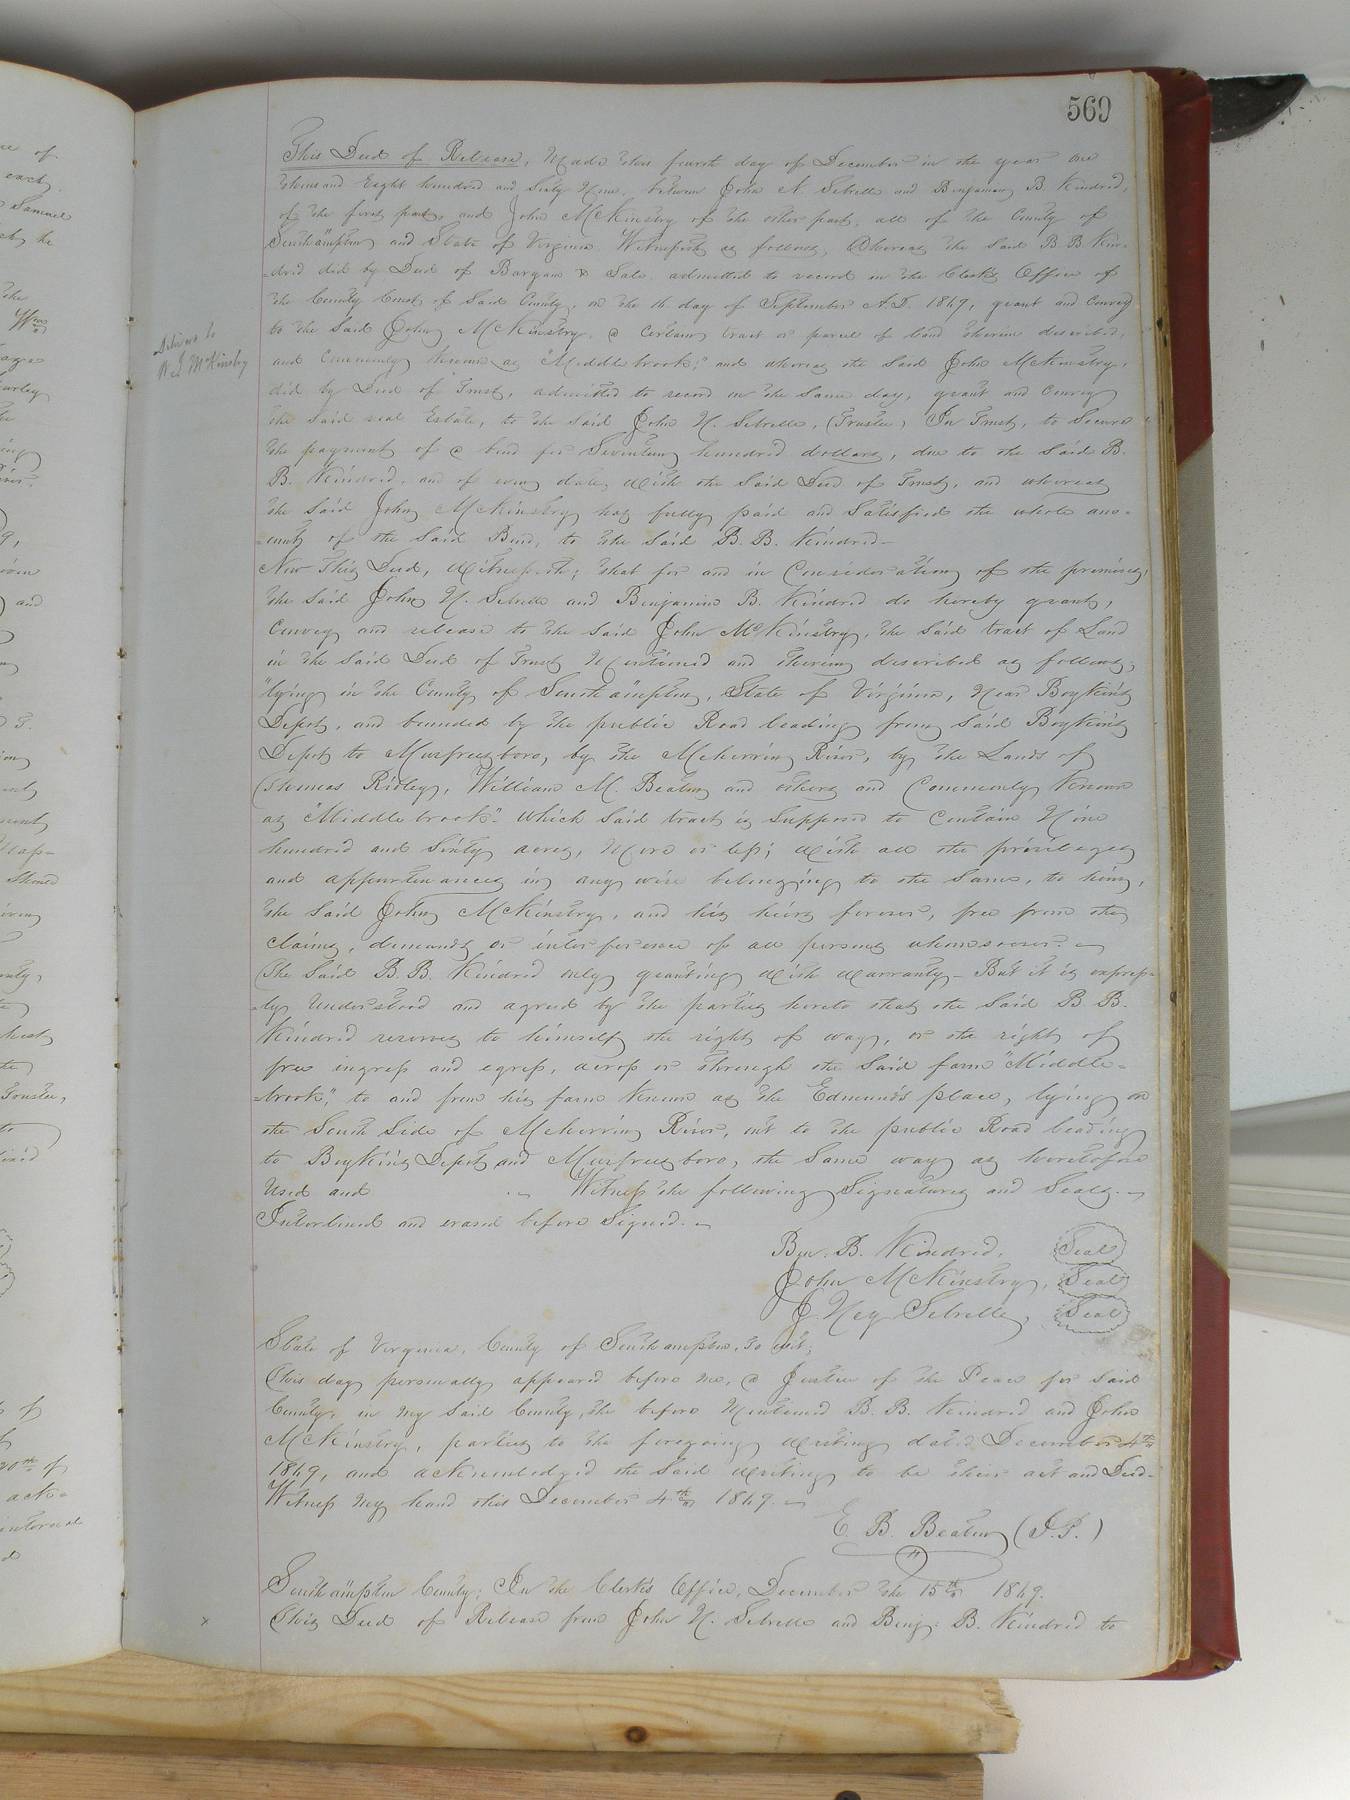 569
This Deed of Release, Made this fourth day of December in the year one
thousand Eight hundred and Sixty Nine, between John N. Sebrelle and Benjamin B. Kindred,
of the first part, and John McKinstry of the other part, all of the County of
Southampton and State of Virginia. Witnesseth as follows, Whereas the Said B. B. Kin-
-dred did by Deed of Bargain & Sale, admitted to record in the Clerk's Office of
the County Court of Said County, on the 16 day of September A.D. 1869, grant and Convey
to the Said John McKinstry, a Certain tract or parcel of land therein described,
and Commonly known as "Middlebrook;" and whereas the Said John McKinstry,
did by Deed of Trust, admitted to record on the Same day, grant and Convey
the Said real Estate, to the Said John N. Sebrelle, (Trustee) In Trust, to Secure
the payment of a bond for Seventeen hundred dollars, due to the Said B.
B. Kindred, and of even date, with the Said Deed of Trust, and whereas
the Said John McKinstry has fully paid and Satisfied the whole am-
-ount of the Said Bond, to the Said B. B. Kindred—
Now This Deed, Witnesseth; that for and in Consideration of the premises,
the Said John N. Sebrelle and Benjamin B. Kindred do hereby grant,
Convey and release to the Said John McKinstry, the Said tract of Land
in the Said Deed of Trust Mentioned and therein described as follows,
"lying in the County of Southampton, State of Virginia, Near Boykin's
Depot, and bounded by the public Road leading from Said Boykin's
Depot to Murfreesboro, by the Meherrin River, by the Lands of
Thomas Ridley, William M. Beaton and others and Commonly Known
as "Middlebrook". which Said tract is Supposed to Contain Nine
hundred and Sixty acres, More or less; with all the privileges
and appurtenances in any wise belonging to the Same, to him,
the Said John McKinstry, and his heirs forever, free from the
claims, demands or interference of all persons whomsoever.—
The Said B. B. Kindred only granting with warranty— But it is express-
-ly Understood and agreed by the parties hereto that the Said B. B.
Kindred reserves to himself the right of way, or the right of
free ingress and egress, across or through the Said farm "Middle-
-brook," to and from his farm Known as the Edmund's place, lying on
the South Side of Meherrin River, out to the public Road leading
to Boykin's Depot and Murfreesboro, the Same way as heretofore
Used and .— Witness the following Signatures and Seals.—
Interlined and erased before Signed.—
Ben. B. Kindred, Seal
John McKinstry, Seal
J. Ney Sebrelle, Seal
State of Virginia, County of Southampton, to wit;
This day personally appeared before me, a Justice of the Peace for Said
County, in My Said County, the before Mentioned B. B. Kindred and John
McKinstry, parties to the foregoing writing dated December 4th
1869, and acknowledged the Said writing to be their act and Deed.
Witness My hand this December 4th 1869.—
E. B. Beaton (J.P.)
Southampton County; In the Clerk's Office, December the 15th 1869.
This Deed of Release from John N. Sebrelle and Benj: B. Kindred to